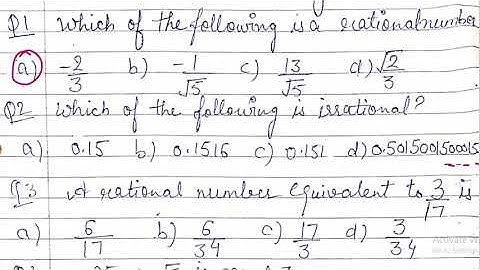 Q1 Which of the following is a rational number
a) -2/3 b) -1/√5 c) 13/√5 d) √2/3
Q2 Which of the following is irrational?
a) 0.15 b) 0.1516 c) 0.151 d) 0.5015001500015
Q3 A rational number equivalent to 3/17 is
a) 6/17 b) 6/34 c) 17/3 d) 3/34